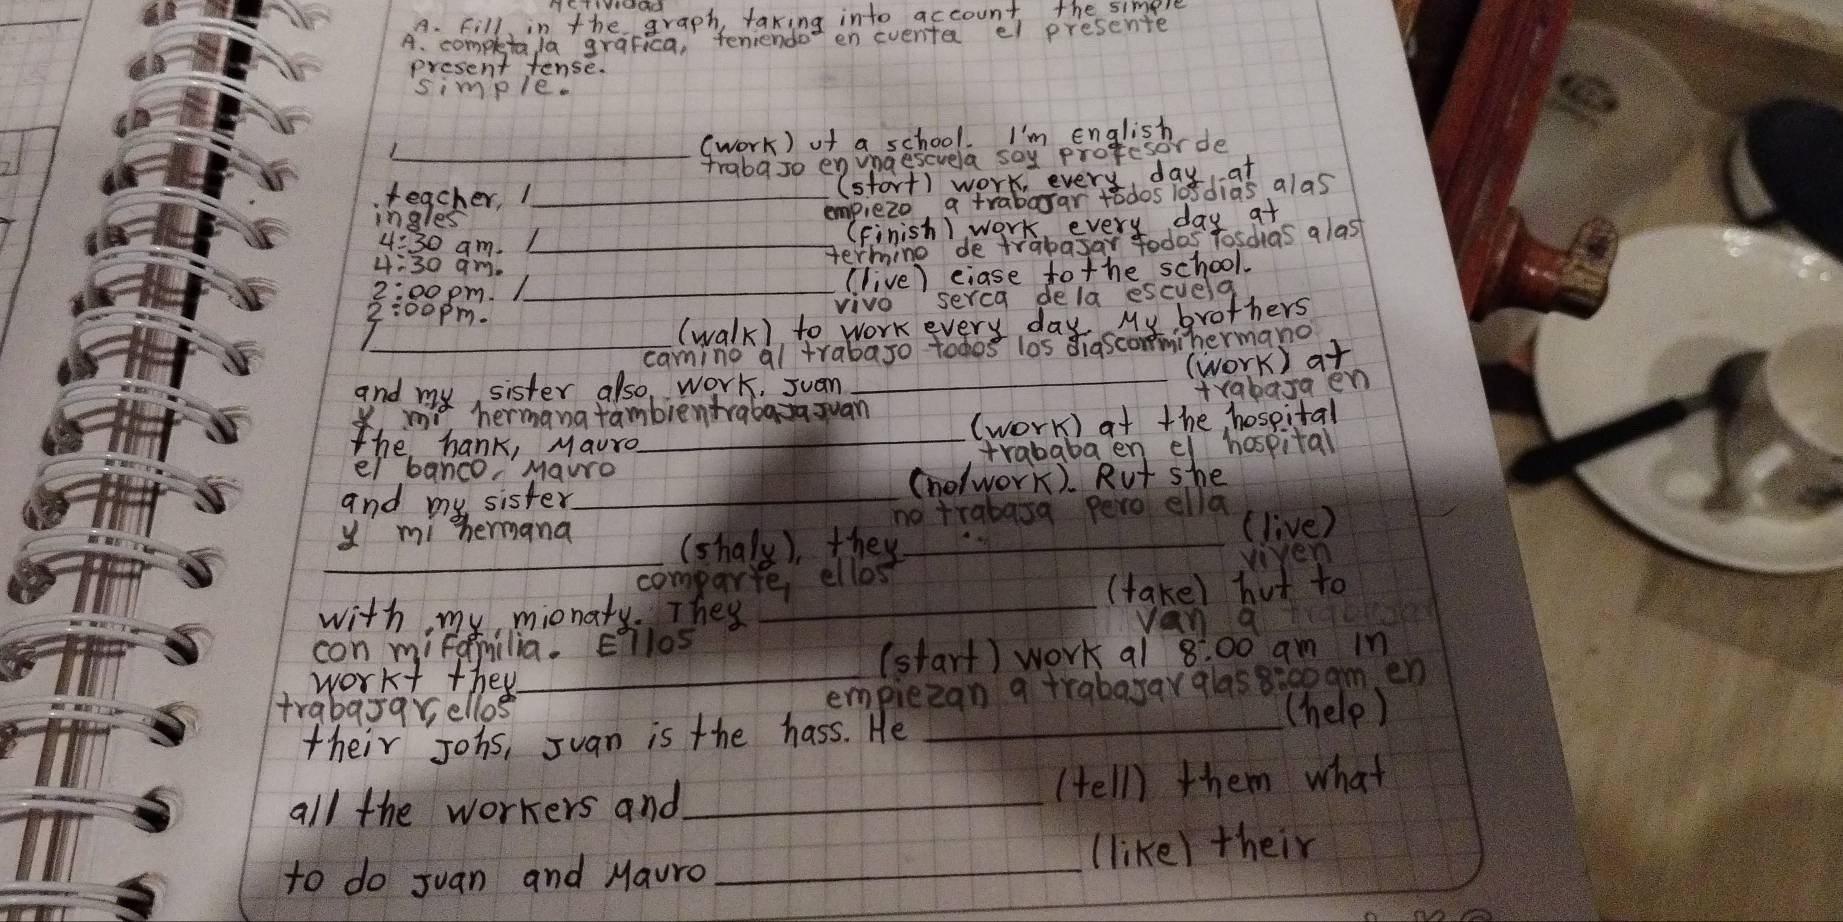 Actividad
A. Fill in the graph, taking into account, the simple
A. completa la grafica, teniendo en cuenta el presente
present tense.
simple.
I ____ (work) ut a school. I'm english
trabajo en una escuela soy profesor de
teacher, I ____ (start) work, every day, at
ingles empiezo a trabajar todos los dias alas
4:30 am. I ____ (finish) work every day at
4:30 am. termino de trabajar todos los dias alas
2:00 pm. I ____ (live) ciase to the school.
2:00pm. vivo serca de la escuela
I ____ (walk) to work every day. My brothers
camino al trabajo todos los dias con mi hermano
and my sister also work. Juan ____ (work) at
y mi hermana tambien trabaja Juan trabaja en
the hank, Mauro ____ (work) at the hospital
el banco, Mauro trababa en el hospital
and my sister ____ (not work). Rut she
y mi hermana no trabaja pero ella
____ (shaly), they ____ (live)
comparte, ellos viven
with my mionaty. They ____ (take) hut to
con mi familia. Ellos van a
workt they ____ (start) work al 8:00 am in
trabajar, ellos empiezan a trabajar alas 8:00 am en
their Johs, Juan is the hass. He ____ (help)
all the workers and ____ (tell) them what
to do Juan and Mauro ____ (like) their